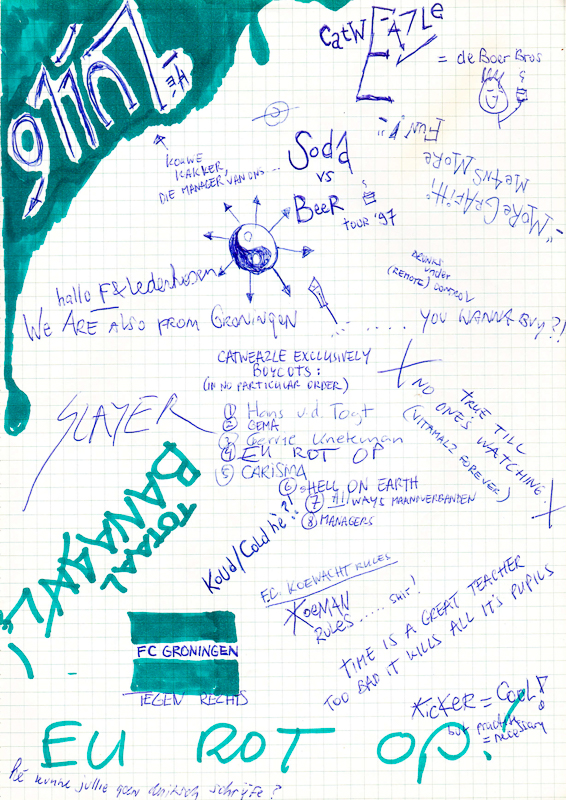 CatWEAZLE
= de Boer Bros
KOUWE
KAKKER,
DIE MANAGER VAN ONS...
Soda
VS
BeeR
TOUR '97
"MoRe GRAFiTTi,
MeANS MoRe
FUN!"
DRINKS
under
(REMOTE) CONTROL
hallo F& Ledenhosen
We ARe Also FROM GRONiNGEN
..... YOU WANNA BUY?!
CATWEAZLE EXCLUSIVELY
BOYCOTS:
(IN NO PARTICULAR ORDER)
① Hans v.d. Togt
② CEMA
③ Gerrie Kneteman
④ EU ROT OP
⑤ CARISMA
⑥ SHELL ON EARTH
⑦ ALWAYS MAANDVERBANDEN
⑧ MANAGERS
SLAYER
TRUE TILL
NO ONE'S WATCHING
(VITAMALZ FOREVER)
TOTAAL
BANAAL!
Koud/Cold hè?!
F.C. KOEWACHT RULES
KoeMAN
RULES ..... SHIT!
TIME IS A GREAT TEACHER
TOO BAD IT KILLS ALL IT'S PUPILS
FC GRONINGEN
TEGEN RECHTS
KicKER = CooL!
but practice
= necessary
EU ROT OP!
Hé kunne jullie geen duitsch schrijfe?